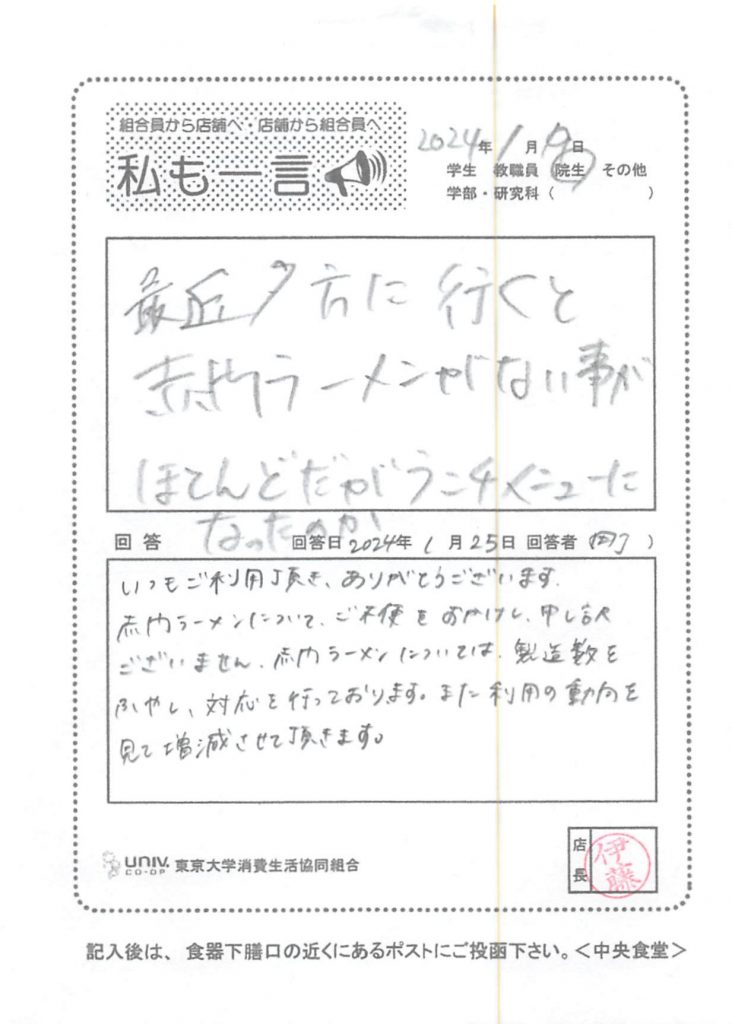 組合員から店舗へ・店舗から組合員へ
私も一言
2024年 1月 日
学生 教職員 院生 その他
学部・研究科( )
最近夕方に行くと
赤門ラーメンがない事が
ほとんどだがランチメニューに
なったのか
回答 回答日2024年 1月25日 回答者 )
いつもご利用頂き、ありがとうございます。
赤門ラーメンについて、ご不便をおかけし、申し訳
ございません。赤門ラーメンについては、製造数を
ふやし、対応を行っております。また利用の動向を
見て増減させて頂きます。
UNIV. CO-OP 東京大学消費生活協同組合
店長 伊藤
記入後は、食器下膳口の近くにあるポストにご投函下さい。<中央食堂>